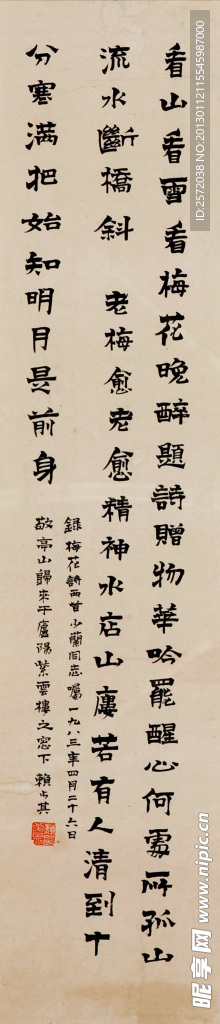 看山看雪看梅花晚醉題詩贈物華吟罷醒心何處所孤山
流水斷橋斜 老梅愈老愈精神水店山廔若有人清到十
分寒满把始知明月是前身
錄梅花詩两首少蘭同志囑一九八三年四月二十六日
敬亭山歸來于廬陽紫雲樓之窓下賴少其
昵享网 www.nipic.cn
ID:2572038 NO:20130112115545987000